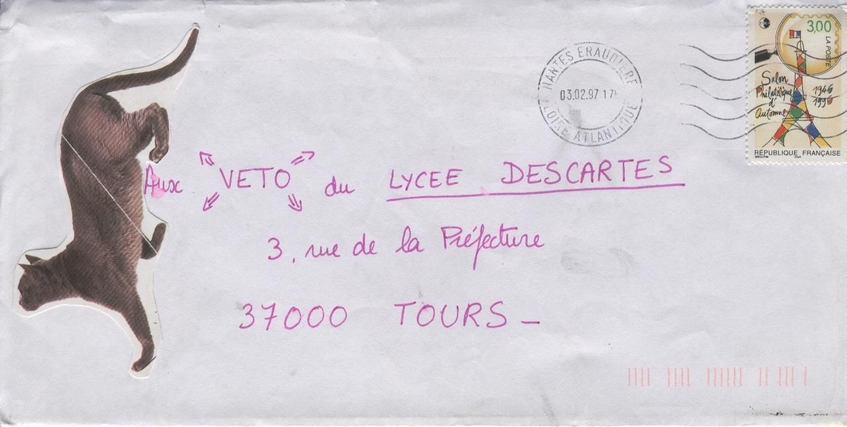 NANTES ERAUDIERE
03.02.97 17
LOIRE ATLANTIQUE
3,00
LA POSTE
Salon
Philatélique
d'
Automne
1946
1996
RÉPUBLIQUE FRANÇAISE
Aux VETO du LYCEE DESCARTES
3, rue de la Préfecture
37000 TOURS